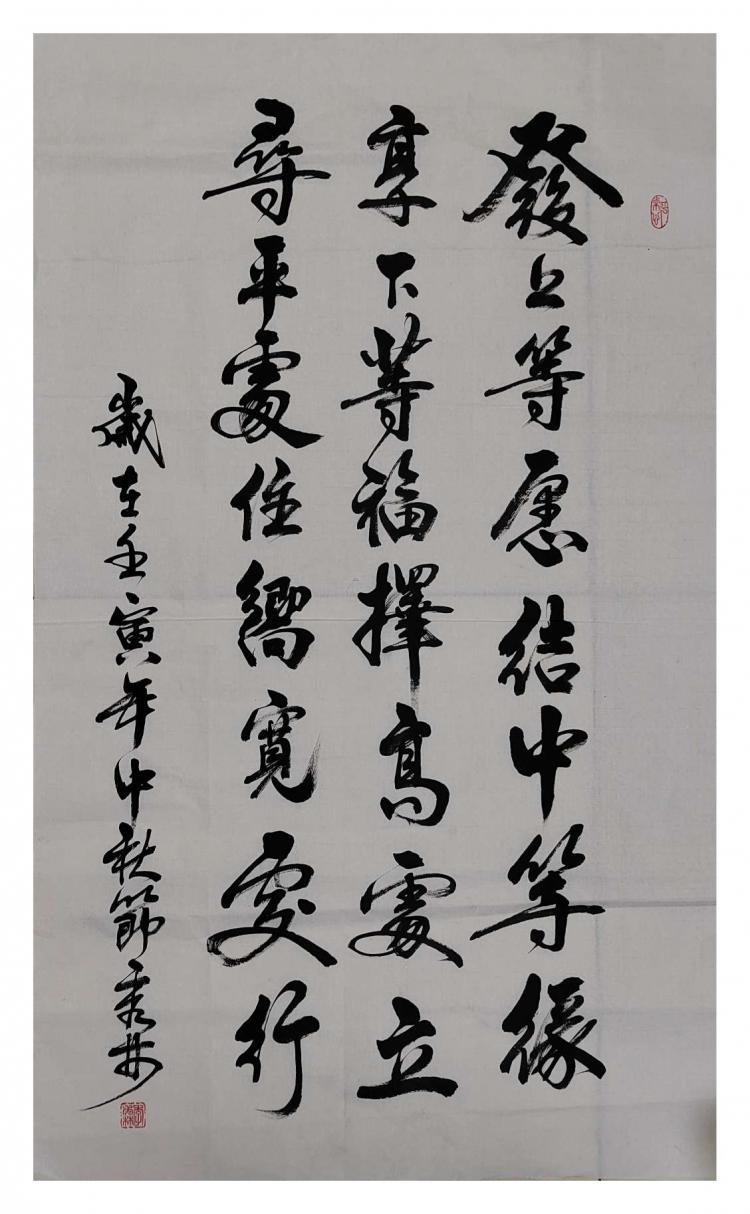 發上等愿結中等緣
享下等福擇高處立
尋平處住嚮寬處行
歲在壬寅年中秋節